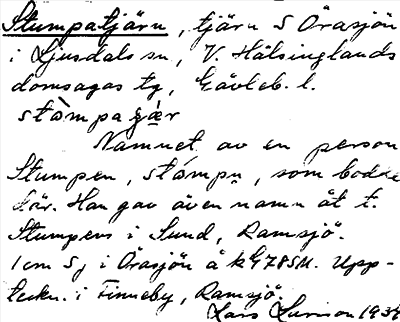 Stumpatjärn, tjärn S Orasjön
i Ljusdals sn, V. Hälsinglands
domsagas tg, Gävleb. l.
Namnet av en person
Stumpen, stámpn̥, som bodde
där. Han gav även namn åt t.
Stumpens i Sund, Ramsjö.
1 cm S i Orasjön å k G 78 SM. Upp-
teckn. i Finneby, Ramsjö.
Lars Larsson 1934